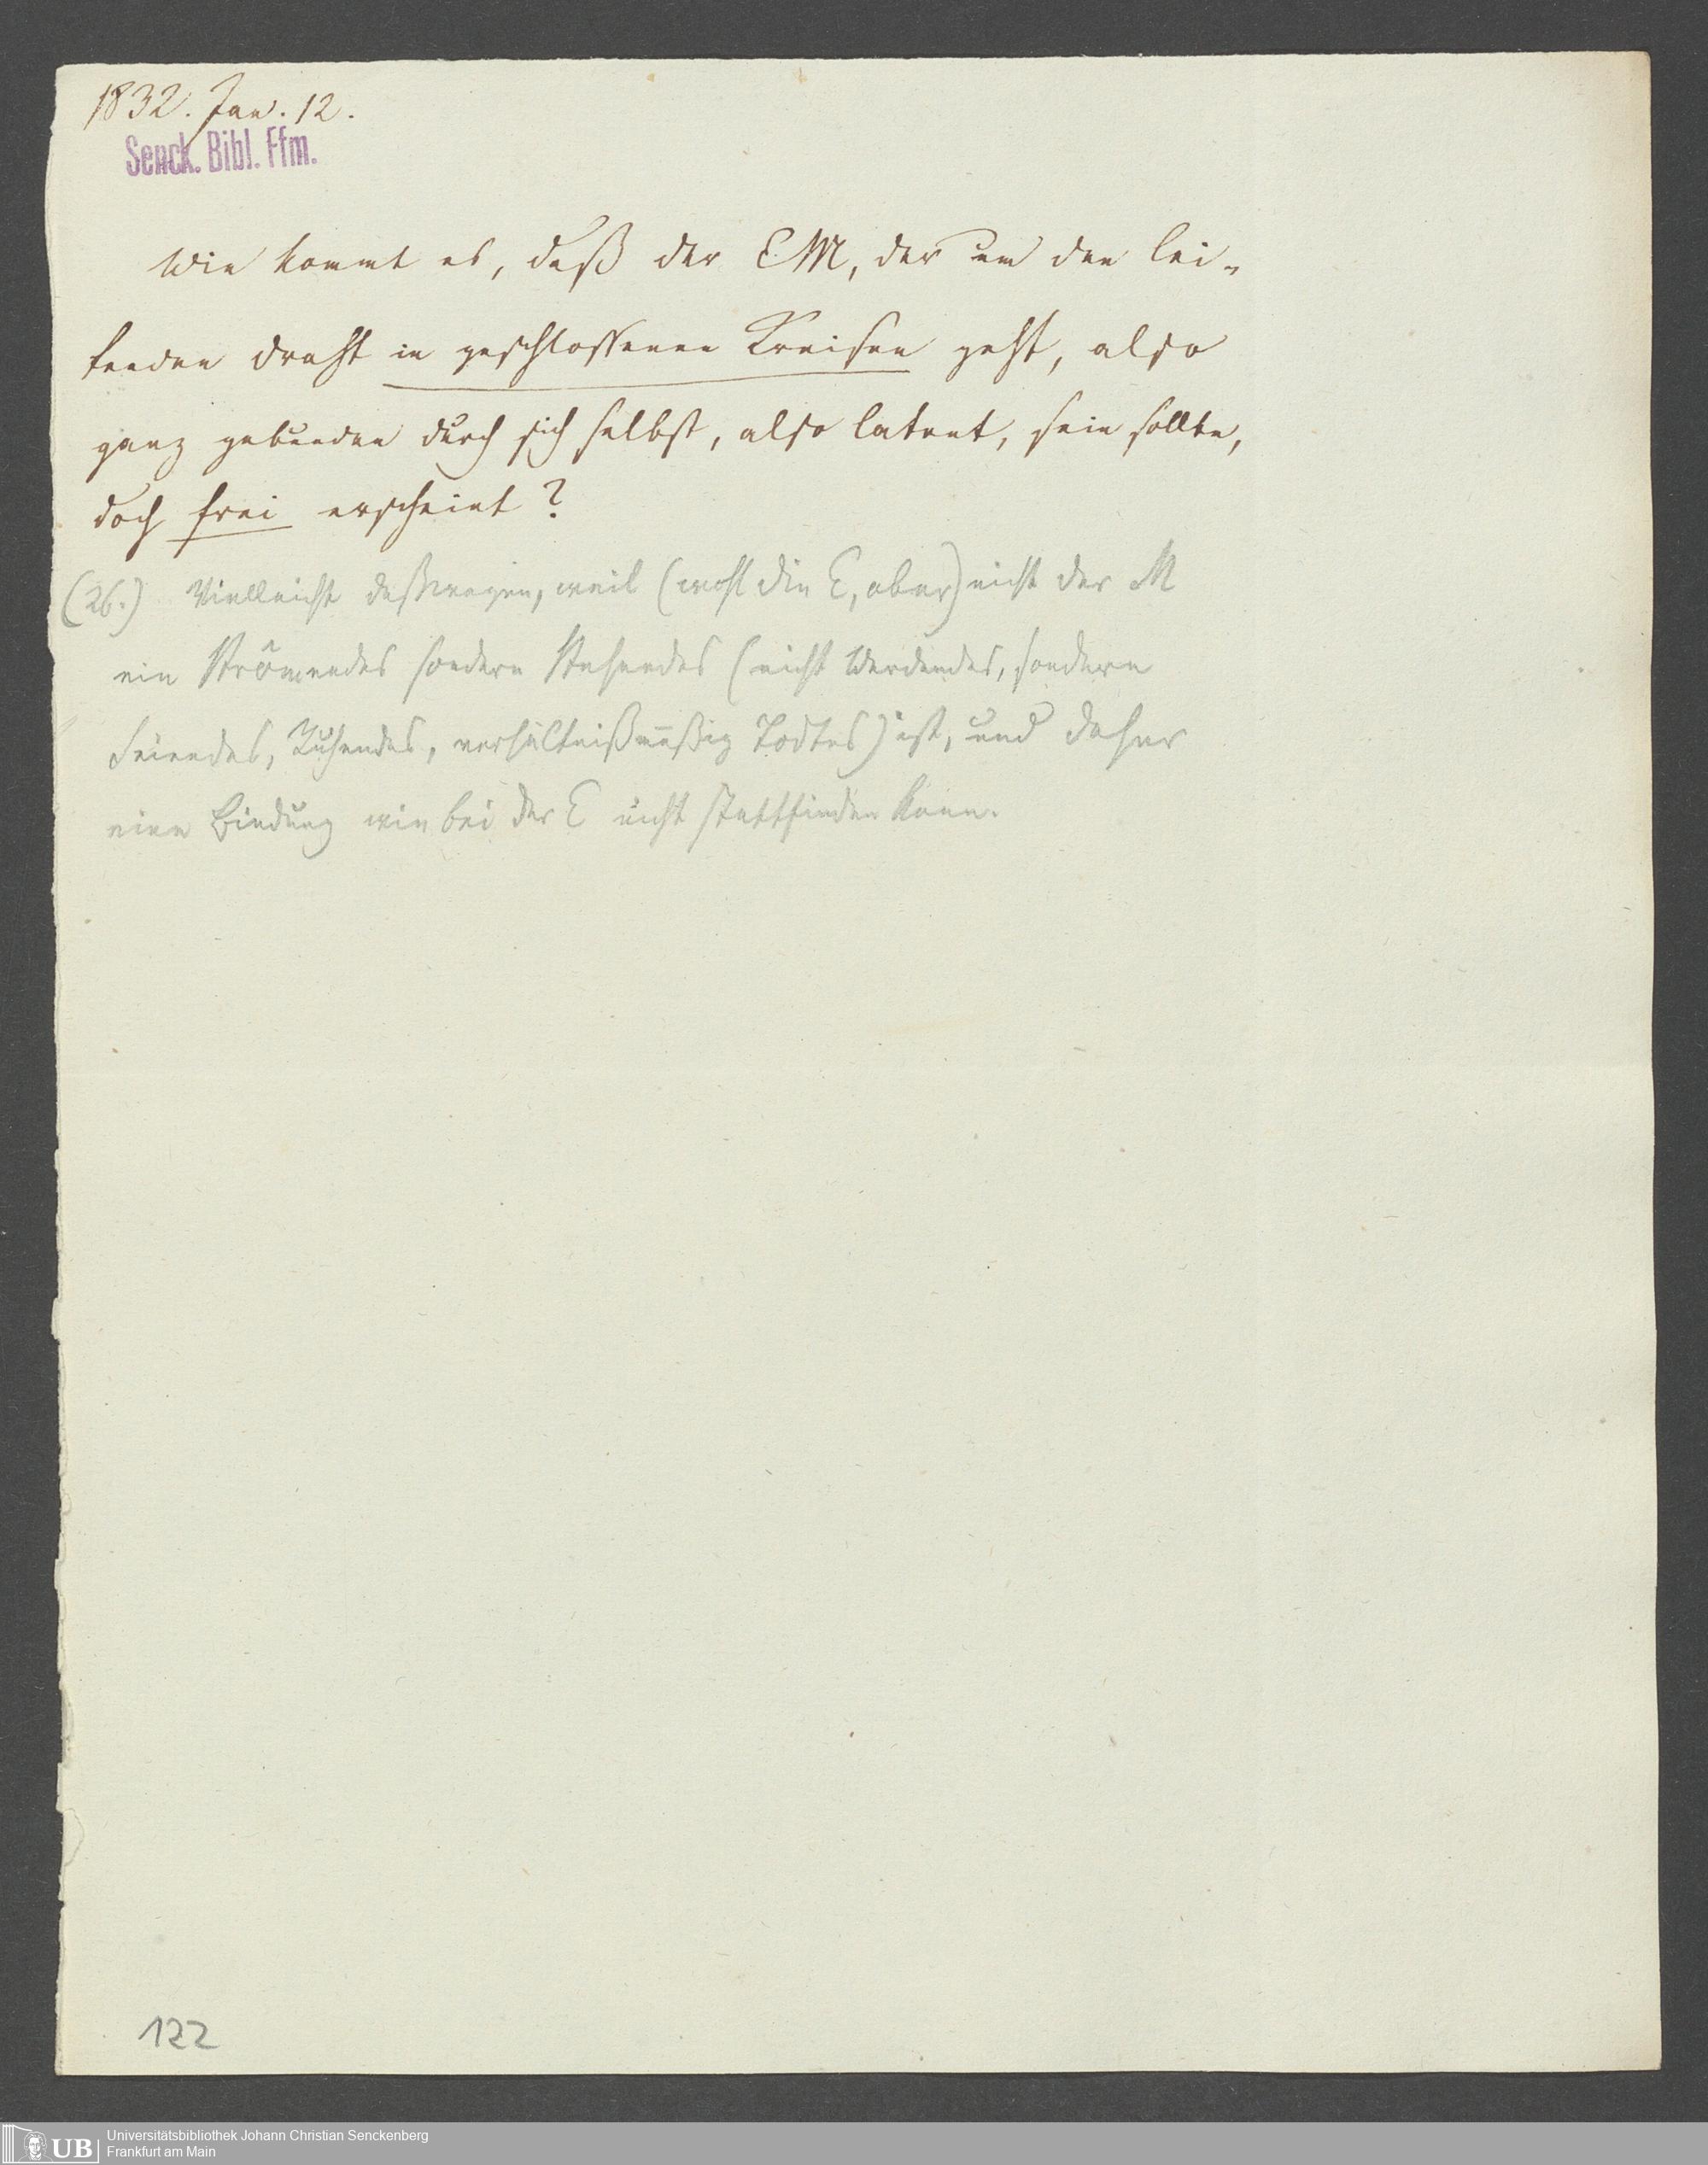 1832. Jan. 12.
Senck. Bibl. Ffm.
Wie kommt es, daß der EM, der um den lei-
tenden Draht in geschlossenen Kreisen geht, also
ganz gebunden durch sich selbst, also latent, sein sollte,
doch frei erscheint?
(26.) Vielleicht deßwegen, weil (wohl die E, aber) nicht der M
ein Strömendes sondern Stehendes (nicht Werdendes, sondern
Seiendes, Ruhendes, verhältnißmäßig Todtes) ist, und daher
eine Bindung wie bei der E nicht stattfinden kann.
122
UB
Universitätsbibliothek Johann Christian Senckenberg
Frankfurt am Main